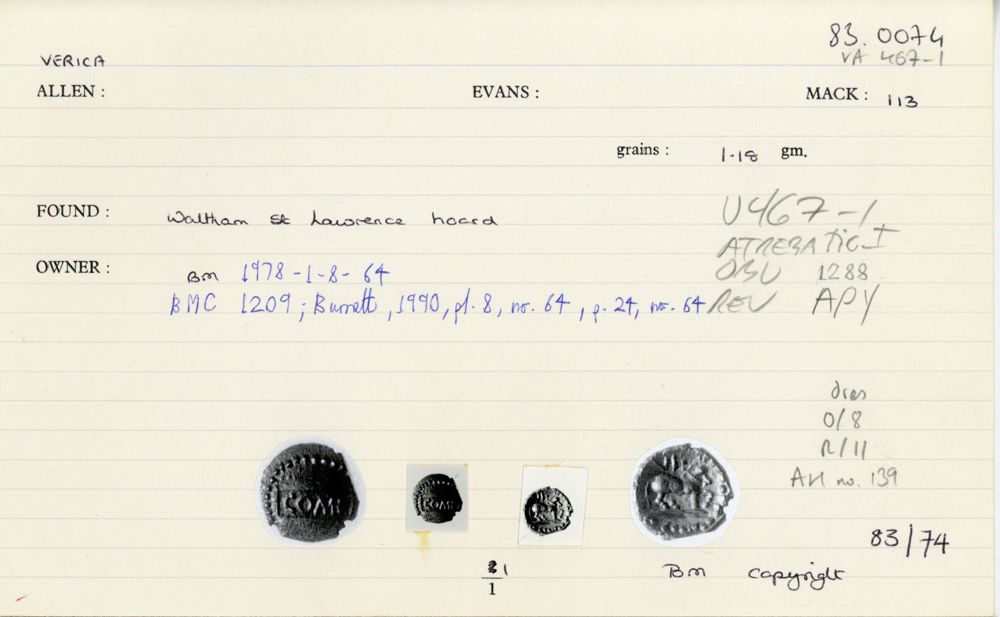 83.0074
VERICA
VA 467-1
ALLEN : EVANS : MACK : 113
grains : 1.18 gm.
FOUND : Waltham St Lawrence hoard
V467-1
ATREBATIC I
OWNER : BM 1978-1-8-64
OBV 1288
BMC 1209; Burnett, 1990, pl. 8, no. 64, p. 24, no. 64
REV APY
dies
O/8
R/11
no. 139
COMF
COMF
83/74
1
1
BM copyright